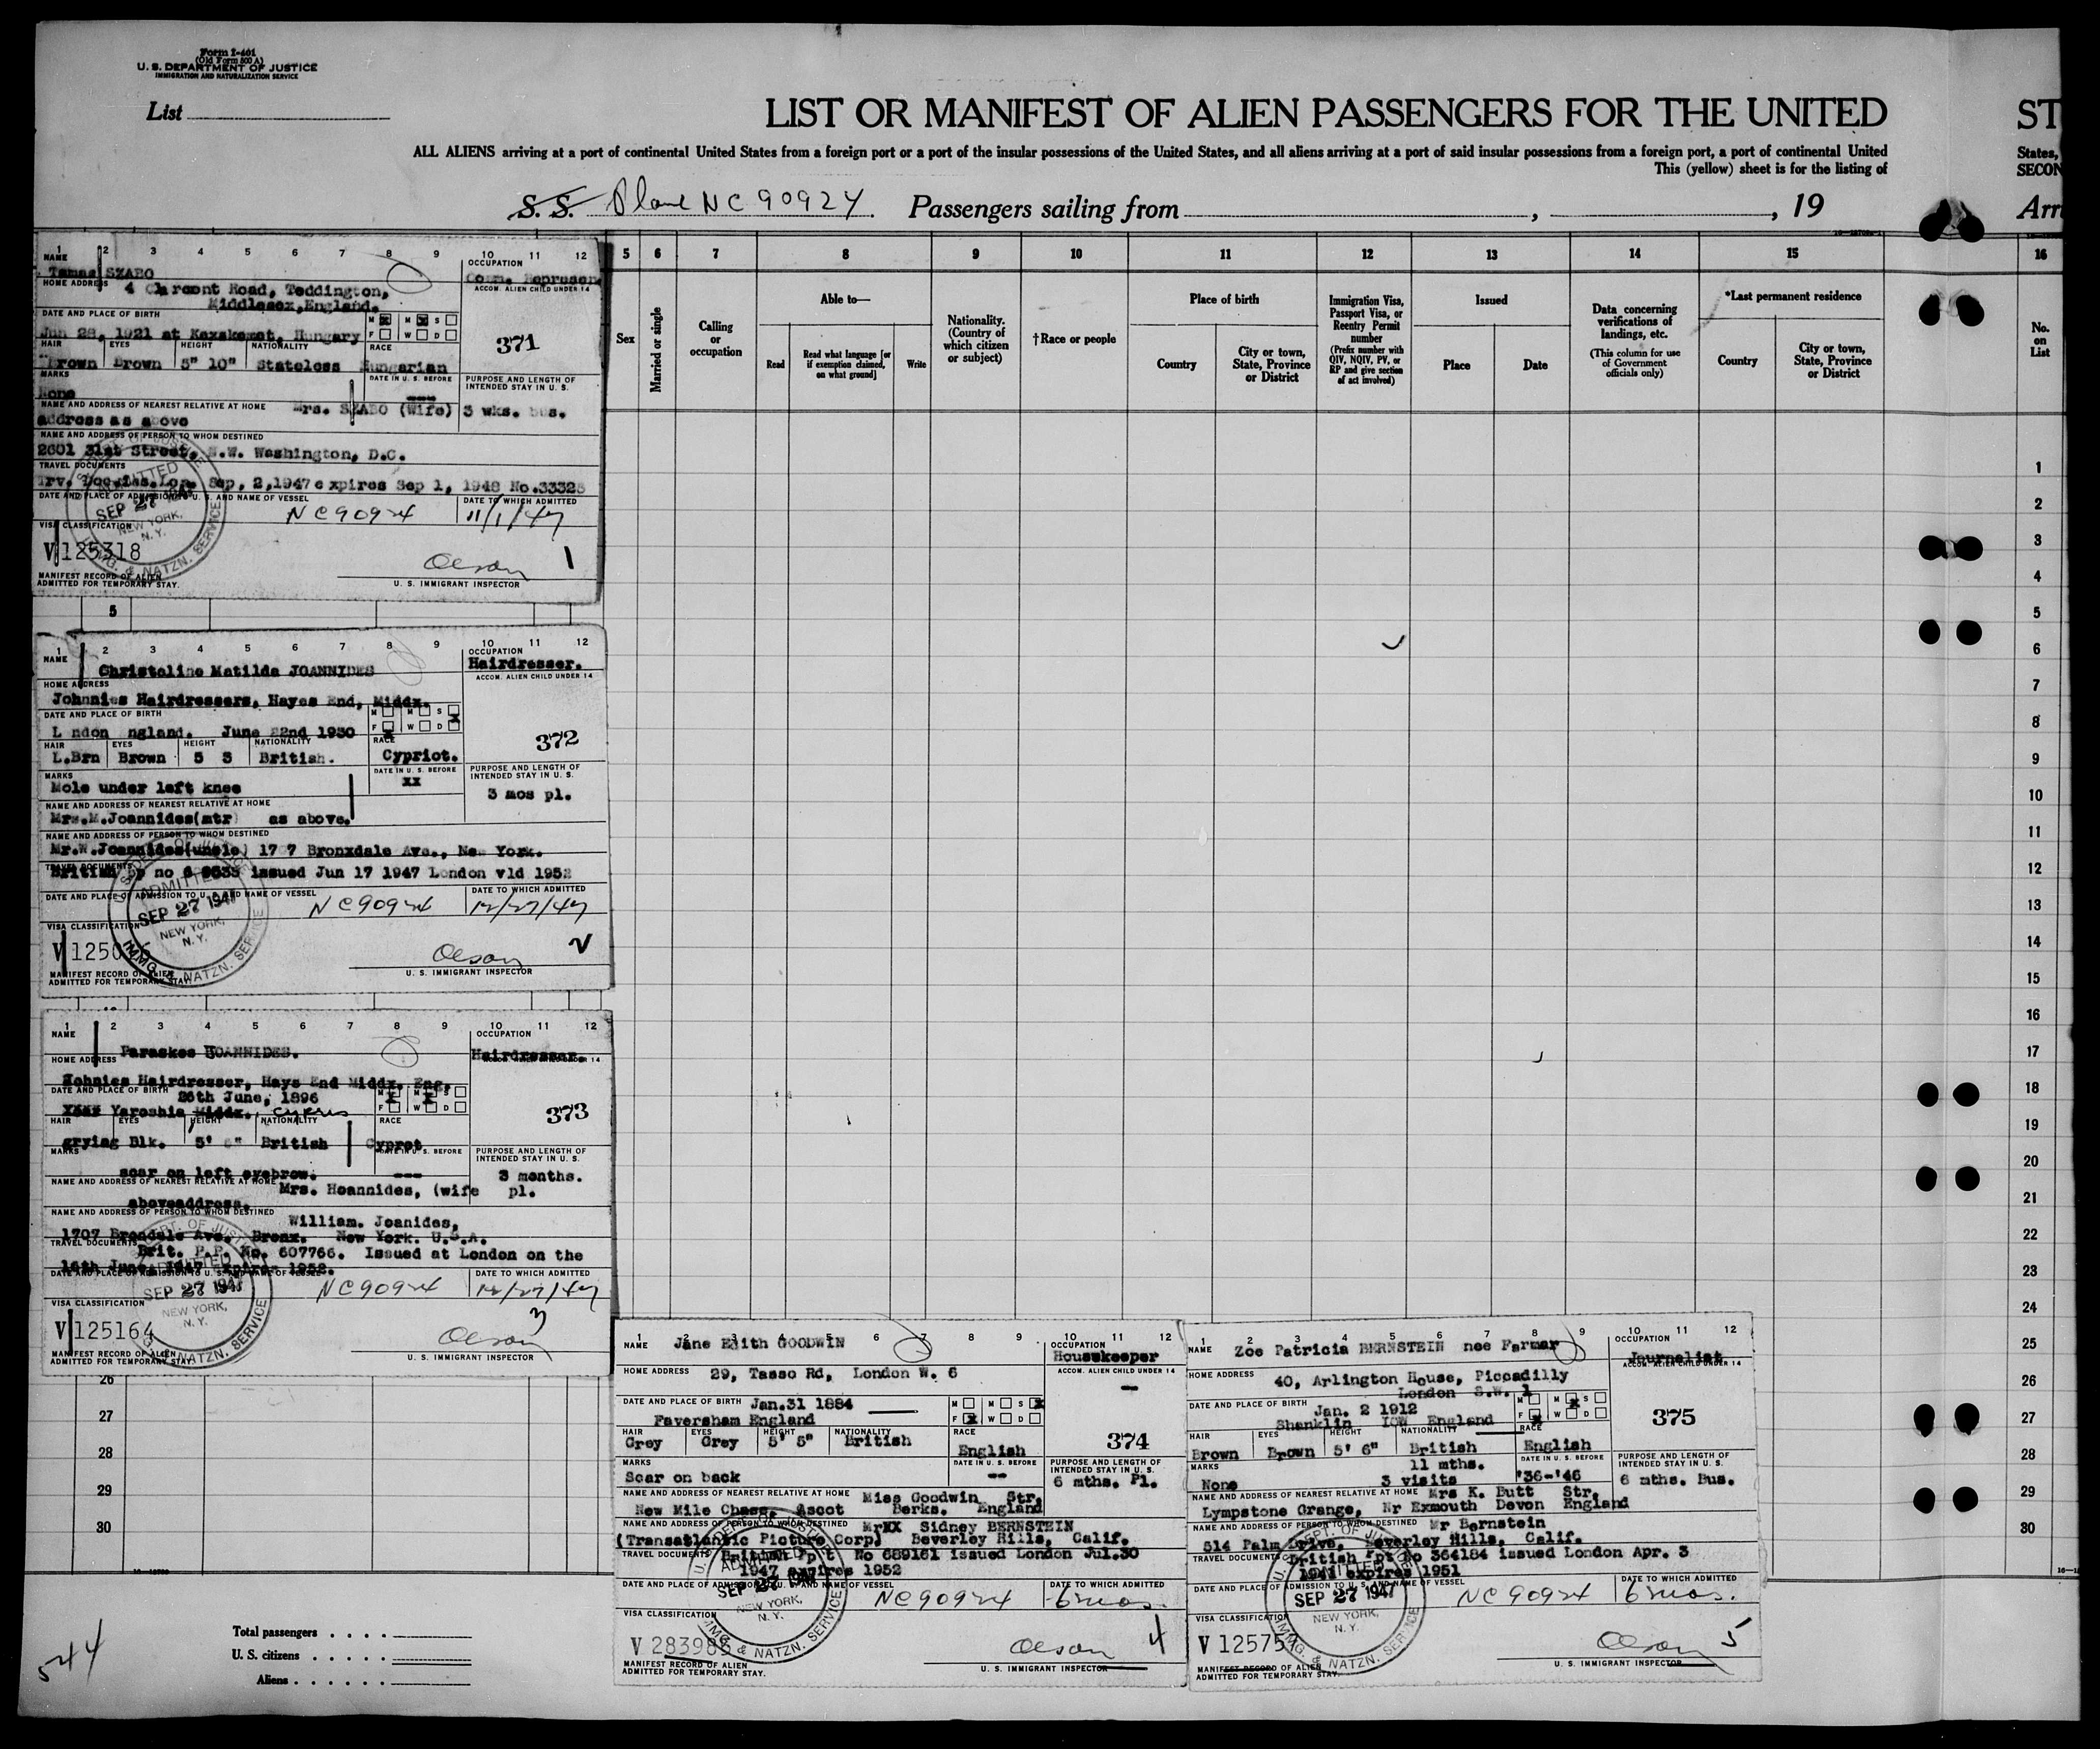 Form I-401
(Old Form 500 A)
U. S. DEPARTMENT OF JUSTICE
IMMIGRATION AND NATURALIZATION SERVICE
List
LIST OR MANIFEST OF ALIEN PASSENGERS FOR THE UNITED
ST
ALL ALIENS arriving at a port of continental United States from a foreign port or a port of the insular possessions of the United States, and all aliens arriving at a port of said insular possessions from a foreign port, a port of continental United
States,
This (yellow) sheet is for the listing of
SECON
S. S. Plane NC 90924 Passengers sailing from , , 19
Arri
1 2 3 4 5 6 7 8 9 10 11 12
NAME OCCUPATION
Tamas SZABO
HOME ADDRESS ACCOM. ALIEN CHILD UNDER 14
4 Clarmont Road, Teddington,
Middlesex, England.
DATE AND PLACE OF BIRTH M M S
Jun 28, 1921 at Kaxskemet, Hungary F W D
371
HAIR EYES HEIGHT NATIONALITY RACE
Brown Brown 5" 10" Stateless Hungarian
MARKS DATE IN U. S. BEFORE PURPOSE AND LENGTH OF INTENDED STAY IN U. S.
None
NAME AND ADDRESS OF NEAREST RELATIVE AT HOME Mrs. SZABO (Wife) 3 wks. bus.
address as above
NAME AND ADDRESS OF PERSON TO WHOM DESTINED
2601 31st Street, N.W. Washington, D.C.
TRAVEL DOCUMENTS
Sep, 2,1947 expires Sep 1, 1948 No.33325
DATE AND PLACE OF ADMISSION TO U. S. AND NAME OF VESSEL DATE TO WHICH ADMITTED
NC90924 11/1/47
ADMITTED SEP 27 1947 NEW YORK, N. Y. IMMG. & NATZN. SERVICE
VISA CLASSIFICATION
V 125318
Olson 1
MANIFEST RECORD OF ALIEN
ADMITTED FOR TEMPORARY STAY. U. S. IMMIGRANT INSPECTOR
5
1 2 3 4 5 6 7 8 9 10 11 12
NAME OCCUPATION
Christaline Matilda JOANNIDES Hairdresser.
HOME ADDRESS ACCOM. ALIEN CHILD UNDER 14
Johnnies Hairdressers, Hayes End, Middx.
DATE AND PLACE OF BIRTH M M S
L ndon ngland. June 22nd 1930 F W D
372
HAIR EYES HEIGHT NATIONALITY RACE
L.Brn Brown 5 3 British. Cypriot.
MARKS DATE IN U. S. BEFORE PURPOSE AND LENGTH OF INTENDED STAY IN U. S.
Mole under left knee xx 3 mos pl.
NAME AND ADDRESS OF NEAREST RELATIVE AT HOME
Mrs.M.Joannides(mtr) as above.
NAME AND ADDRESS OF PERSON TO WHOM DESTINED
Mr.W.Joannides(uncle) 17 7 Bronxdale Ave., New York.
TRAVEL DOCUMENTS
British pp no issued Jun 17 1947 London vld 1952
DATE AND PLACE OF ADMISSION TO U. S. AND NAME OF VESSEL DATE TO WHICH ADMITTED
NC90924 12/27/47
ADMITTED SEP 27 1947 NEW YORK, N. Y. IMMG. & NATZN. SERVICE
VISA CLASSIFICATION
V
Olson 2
MANIFEST RECORD OF ALIEN
ADMITTED FOR TEMPORARY STAY. U. S. IMMIGRANT INSPECTOR
1 2 3 4 5 6 7 8 9 10 11 12
NAME OCCUPATION
Paraskes JOANNIDES. Hairdresser
HOME ADDRESS
Johnies Hairdresser, Hays End Middx. Eng.
DATE AND PLACE OF BIRTH 26th June, 1896 M M S
Yaroshia Middx. Cyprus F W D
373
HAIR EYES HEIGHT NATIONALITY RACE
grying Blk. 5' 6" British Cyprot
MARKS DATE IN U. S. BEFORE PURPOSE AND LENGTH OF INTENDED STAY IN U. S.
scar on left eyebrow. --- 3 months.
NAME AND ADDRESS OF NEAREST RELATIVE AT HOME Mrs. Hoannides, (wife pl.
aboveaddress.
NAME AND ADDRESS OF PERSON TO WHOM DESTINED
William. Joanides,
1707 Brondale Ave. Bronx. New York. U.S.A.
TRAVEL DOCUMENTS Brit. P.P. No. 607766. Issued at London on the
16th June, 1947 expires 1952.
DATE AND PLACE OF ADMISSION TO U. S. AND NAME OF VESSEL DATE TO WHICH ADMITTED
NC90924 12/27/47
SEP 27 1947 NEW YORK, N. Y. NATZN. SERVICE
VISA CLASSIFICATION
V 125164
Olson 3
MANIFEST RECORD OF ALIEN
ADMITTED FOR TEMPORARY STAY. U. S. IMMIGRANT INSPECTOR
26
27
28
29
30
5 6 7 8 9 10 11 12 13 14 15 16
Sex
Married or single
Calling or occupation
Able to—
Read
Read what language [or if exemption claimed, on what ground]
Write
Nationality. (Country of which citizen or subject)
†Race or people
Place of birth
Country
City or town, State, Province or District
Immigration Visa, Passport Visa, or Reentry Permit number
(Prefix number with QIV, NQIV, PV, or RP and give section of act involved)
Issued
Place
Date
Data concerning verifications of landings, etc.
(This column for use of Government officials only)
*Last permanent residence
Country
City or town, State, Province or District
No. on List
1
2
3
4
5
6
7
8
9
10
11
12
13
14
15
16
17
18
19
20
21
22
23
24
25
26
27
28
29
30
1 2 3 4 5 6 7 8 9 10 11 12
NAME Jane Edith GOODWIN OCCUPATION
Housekeeper
HOME ADDRESS 29, Tasso Rd, London W. 6 ACCOM. ALIEN CHILD UNDER 14
DATE AND PLACE OF BIRTH Jan.31 1884 M M S
Faversham England F W D
374
HAIR EYES HEIGHT NATIONALITY RACE
Grey Grey 5' 5" British English
MARKS DATE IN U. S. BEFORE PURPOSE AND LENGTH OF INTENDED STAY IN U. S.
Scar on back -- 6 mths. Pl.
NAME AND ADDRESS OF NEAREST RELATIVE AT HOME Miss Goodwin Str.
New Mile Chase, Ascot Berks. England
NAME AND ADDRESS OF PERSON TO WHOM DESTINED MrXX Sidney BERNSTEIN
(Transatlantic Picture Corp) Beverley Hills, Calif.
TRAVEL DOCUMENTS British Ppt No 689161 issued London Jul.30
1947 expires 1952
DATE AND PLACE OF ADMISSION TO U. S. AND NAME OF VESSEL DATE TO WHICH ADMITTED
NC90924 6 mos.
ADMITTED SEP 27 1947 NEW YORK, N. Y. IMMG. & NATZN. SERVICE
VISA CLASSIFICATION
V 283985
Olson 4
MANIFEST RECORD OF ALIEN
ADMITTED FOR TEMPORARY STAY. U. S. IMMIGRANT INSPECTOR
1 2 3 4 5 6 7 8 9 10 11 12
NAME Zoe Patricia BERNSTEIN nee Farmar OCCUPATION
Journalist
HOME ADDRESS 40, Arlington House, Piccadilly ACCOM. ALIEN CHILD UNDER 14
London S.W. 1
DATE AND PLACE OF BIRTH Jan. 2 1912 M M S
Shanklin IOW England F W D
375
HAIR EYES HEIGHT NATIONALITY RACE
Brown Brown 5' 6" British English
MARKS 11 mths. DATE IN U. S. BEFORE PURPOSE AND LENGTH OF INTENDED STAY IN U. S.
None 3 visits '36-'46 6 mths. Bus.
NAME AND ADDRESS OF NEAREST RELATIVE AT HOME Mrs K. Butt Str.
Lympstone Grange, Nr Exmouth Devon England
NAME AND ADDRESS OF PERSON TO WHOM DESTINED Mr Bernstein
514 Palm Drive, Beverley Hills, Calif.
TRAVEL DOCUMENTS British Ppt No 364184 issued London Apr. 3
1941 expires 1951
DATE AND PLACE OF ADMISSION TO U. S. AND NAME OF VESSEL DATE TO WHICH ADMITTED
NC90924 6 mos.
ADMITTED SEP 27 1947 NEW YORK, N. Y. IMMG. & NATZN. SERVICE
VISA CLASSIFICATION
V 125757
Olson 5
MANIFEST RECORD OF ALIEN
ADMITTED FOR TEMPORARY STAY. U. S. IMMIGRANT INSPECTOR
544
Total passengers . . . .
U. S. citizens . . . . .
Aliens . . . . . .